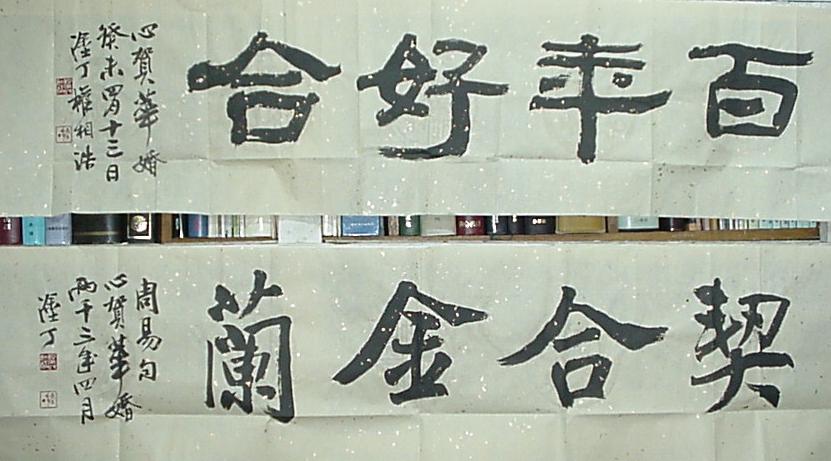 百年好合
心賀華婚
癸未四月十三日
權相浩
契合金蘭
周易句
心賀華婚
兩千三年四月